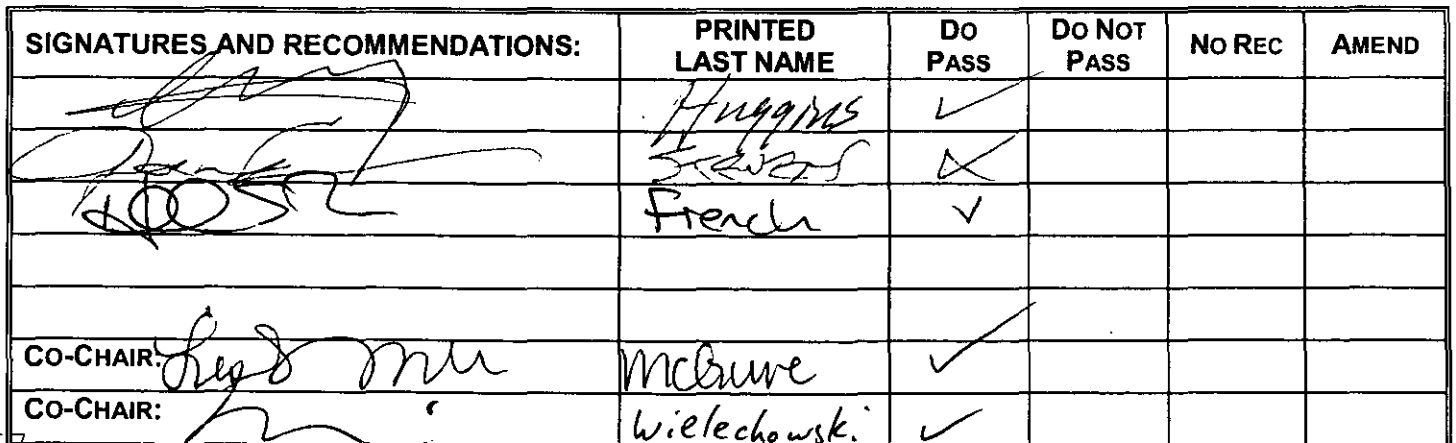 SIGNATURES AND RECOMMENDATIONS: PRINTED LAST NAME DO PASS DO NOT PASS NO REC AMEND
Huggins ✓
✓
French ✓
CO-CHAIR: McGuire ✓
CO-CHAIR: Wielechowski ✓